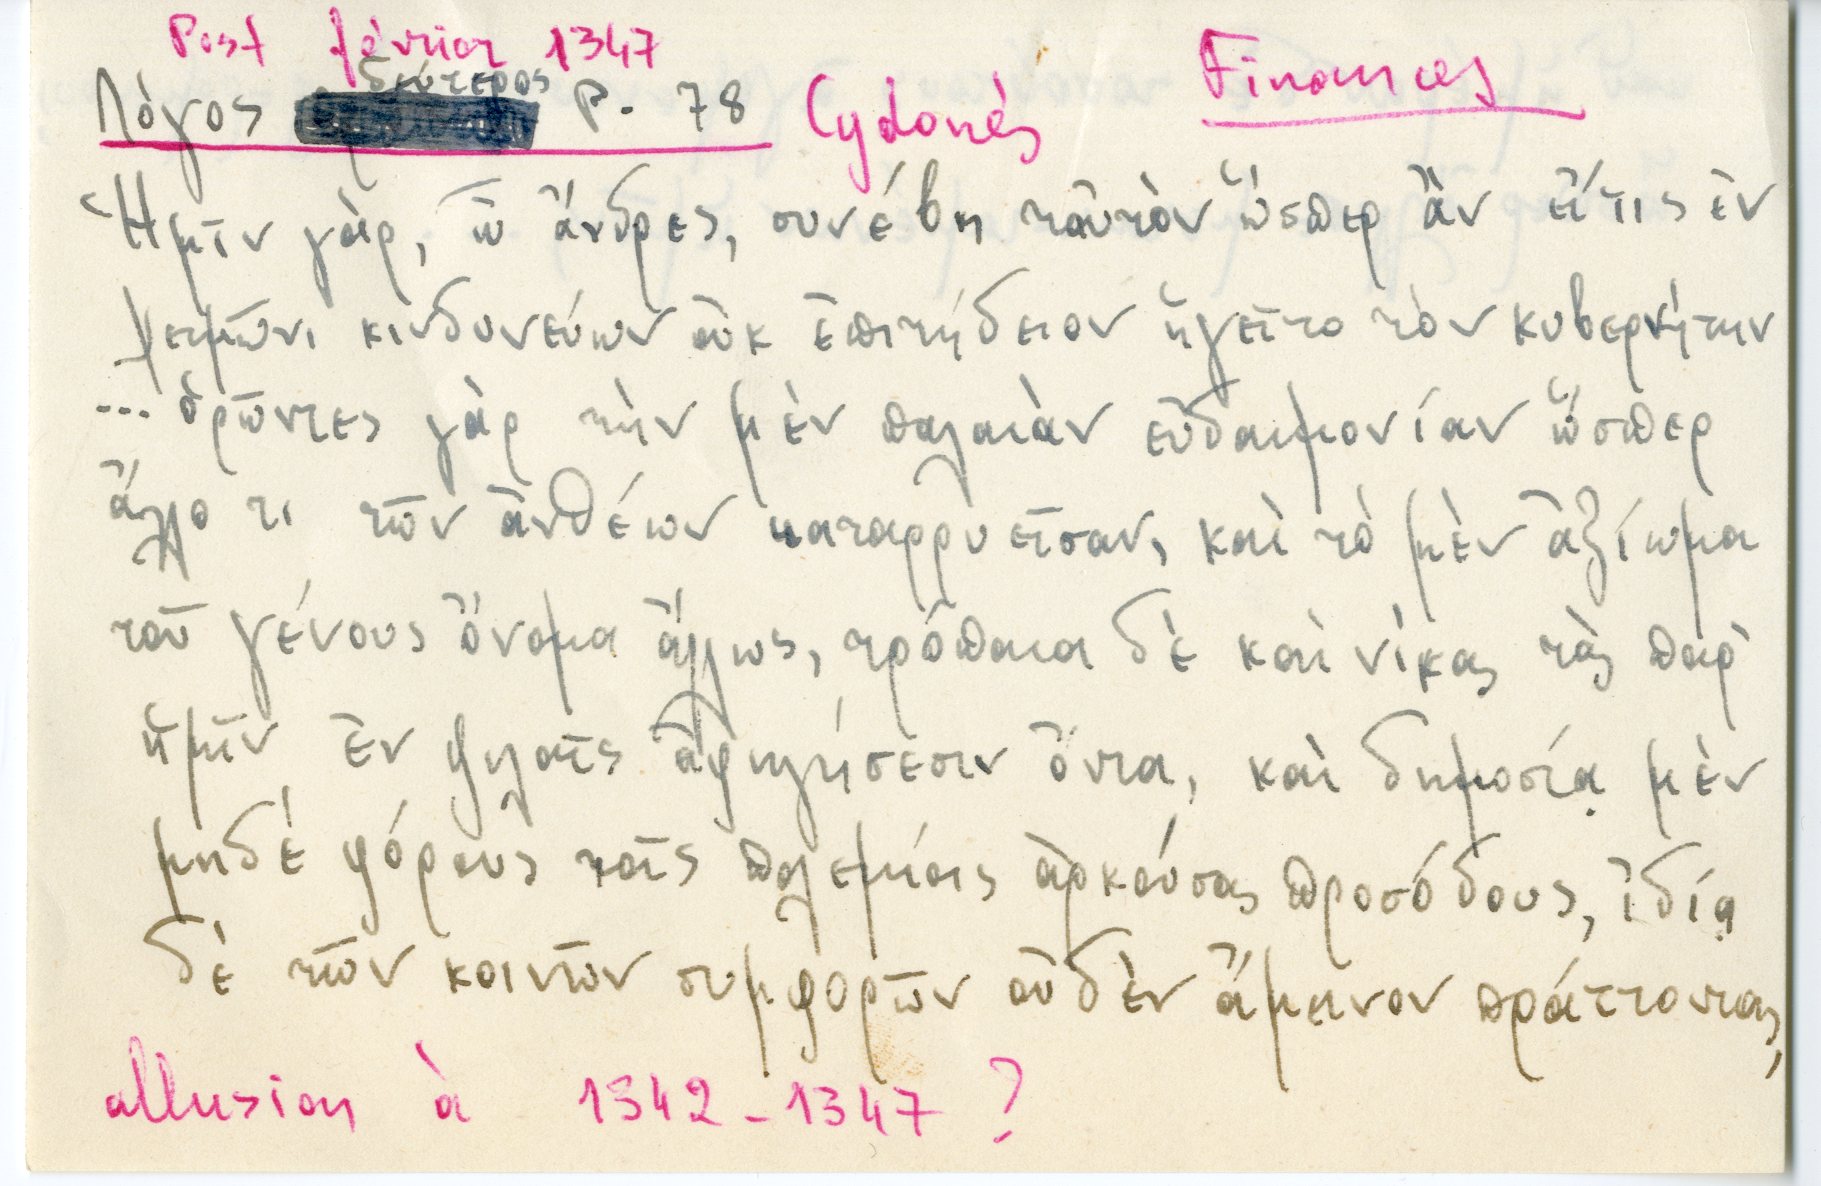 Post février 1347
Finances
Λόγος δεύτερος P. 78 Cydonès
Ἡμῖν γὰρ, ὦ ἄνδρες, συνέβη ταὐτὸν ὥσπερ ἂν εἴ τις ἐν
χειμῶνι κινδυνεύων οὐκ ἐπιτήδειον ἡγεῖτο τὸν κυβερνήτην
... ὁρῶντες γὰρ τὴν μὲν παλαιὰν εὐδαιμονίαν ὥσπερ
ἄλλο τι τῶν ἀνθέων καταρρυεῖσαν, καὶ τὸ μὲν ἀξίωμα
τοῦ γένους ὄνομα ἄλλως, τρόπαια δὲ καὶ νίκας τὰς παρ'
ἡμῖν ἐν ψιλαῖς ἀφηγήσεσιν ὄντα, καὶ δημοσίᾳ μὲν
μηδὲ φόρους τοῖς πολεμίοις ἀρκούσας προσόδους, ἰδίᾳ
δὲ τῶν κοινῶν συμφορῶν οὐδὲν ἄμεινον πράττοντας,
allusion à 1342-1347 ?